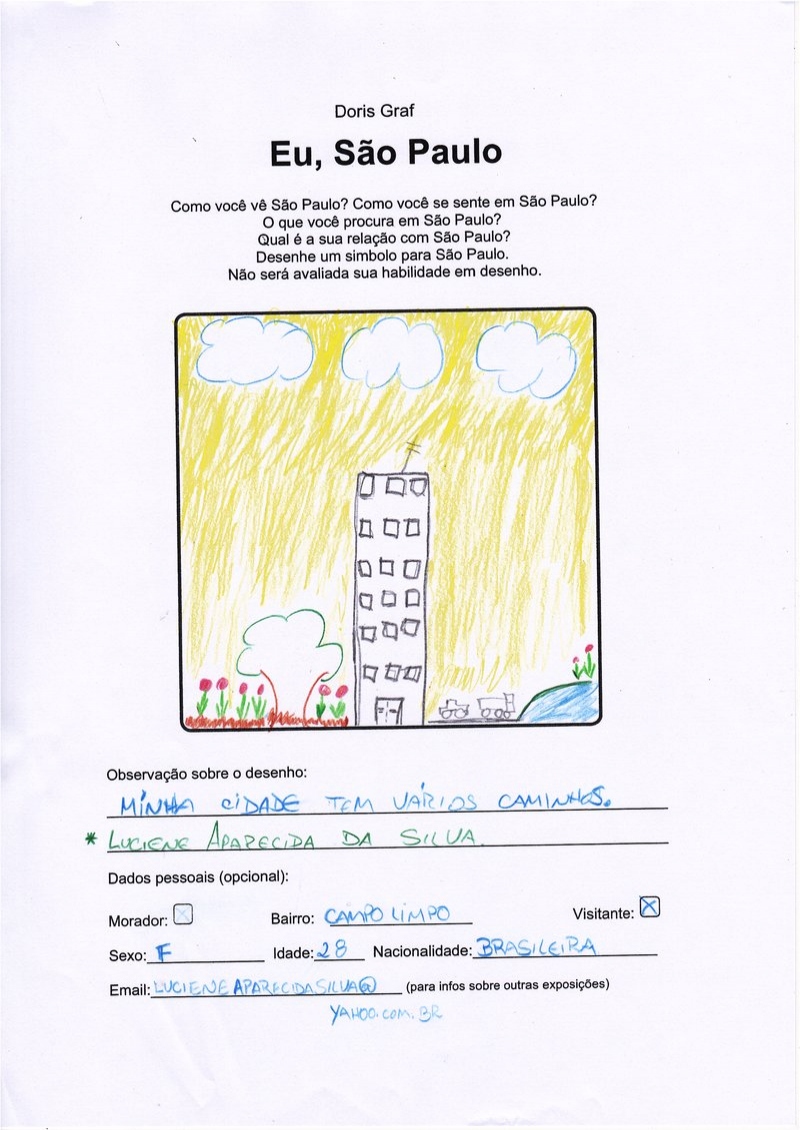 Doris Graf
Eu, São Paulo
Como você vê São Paulo? Como você se sente em São Paulo?
O que você procura em São Paulo?
Qual é a sua relação com São Paulo?
Desenhe um simbolo para São Paulo.
Não será avaliada sua habilidade em desenho.
Observação sobre o desenho:
MINHA CIDADE TEM VÁRIOS CAMINHOS.
* LUCIENE APARECIDA DA SILVA
Dados pessoais (opcional):
Morador: Bairro: CAMPO LIMPO Visitante: X
Sexo: F Idade: 28 Nacionalidade: BRASILEIRA
Email: LUCIENEAPARECIDASILVA@ (para infos sobre outras exposições)
YAHOO.COM.BR